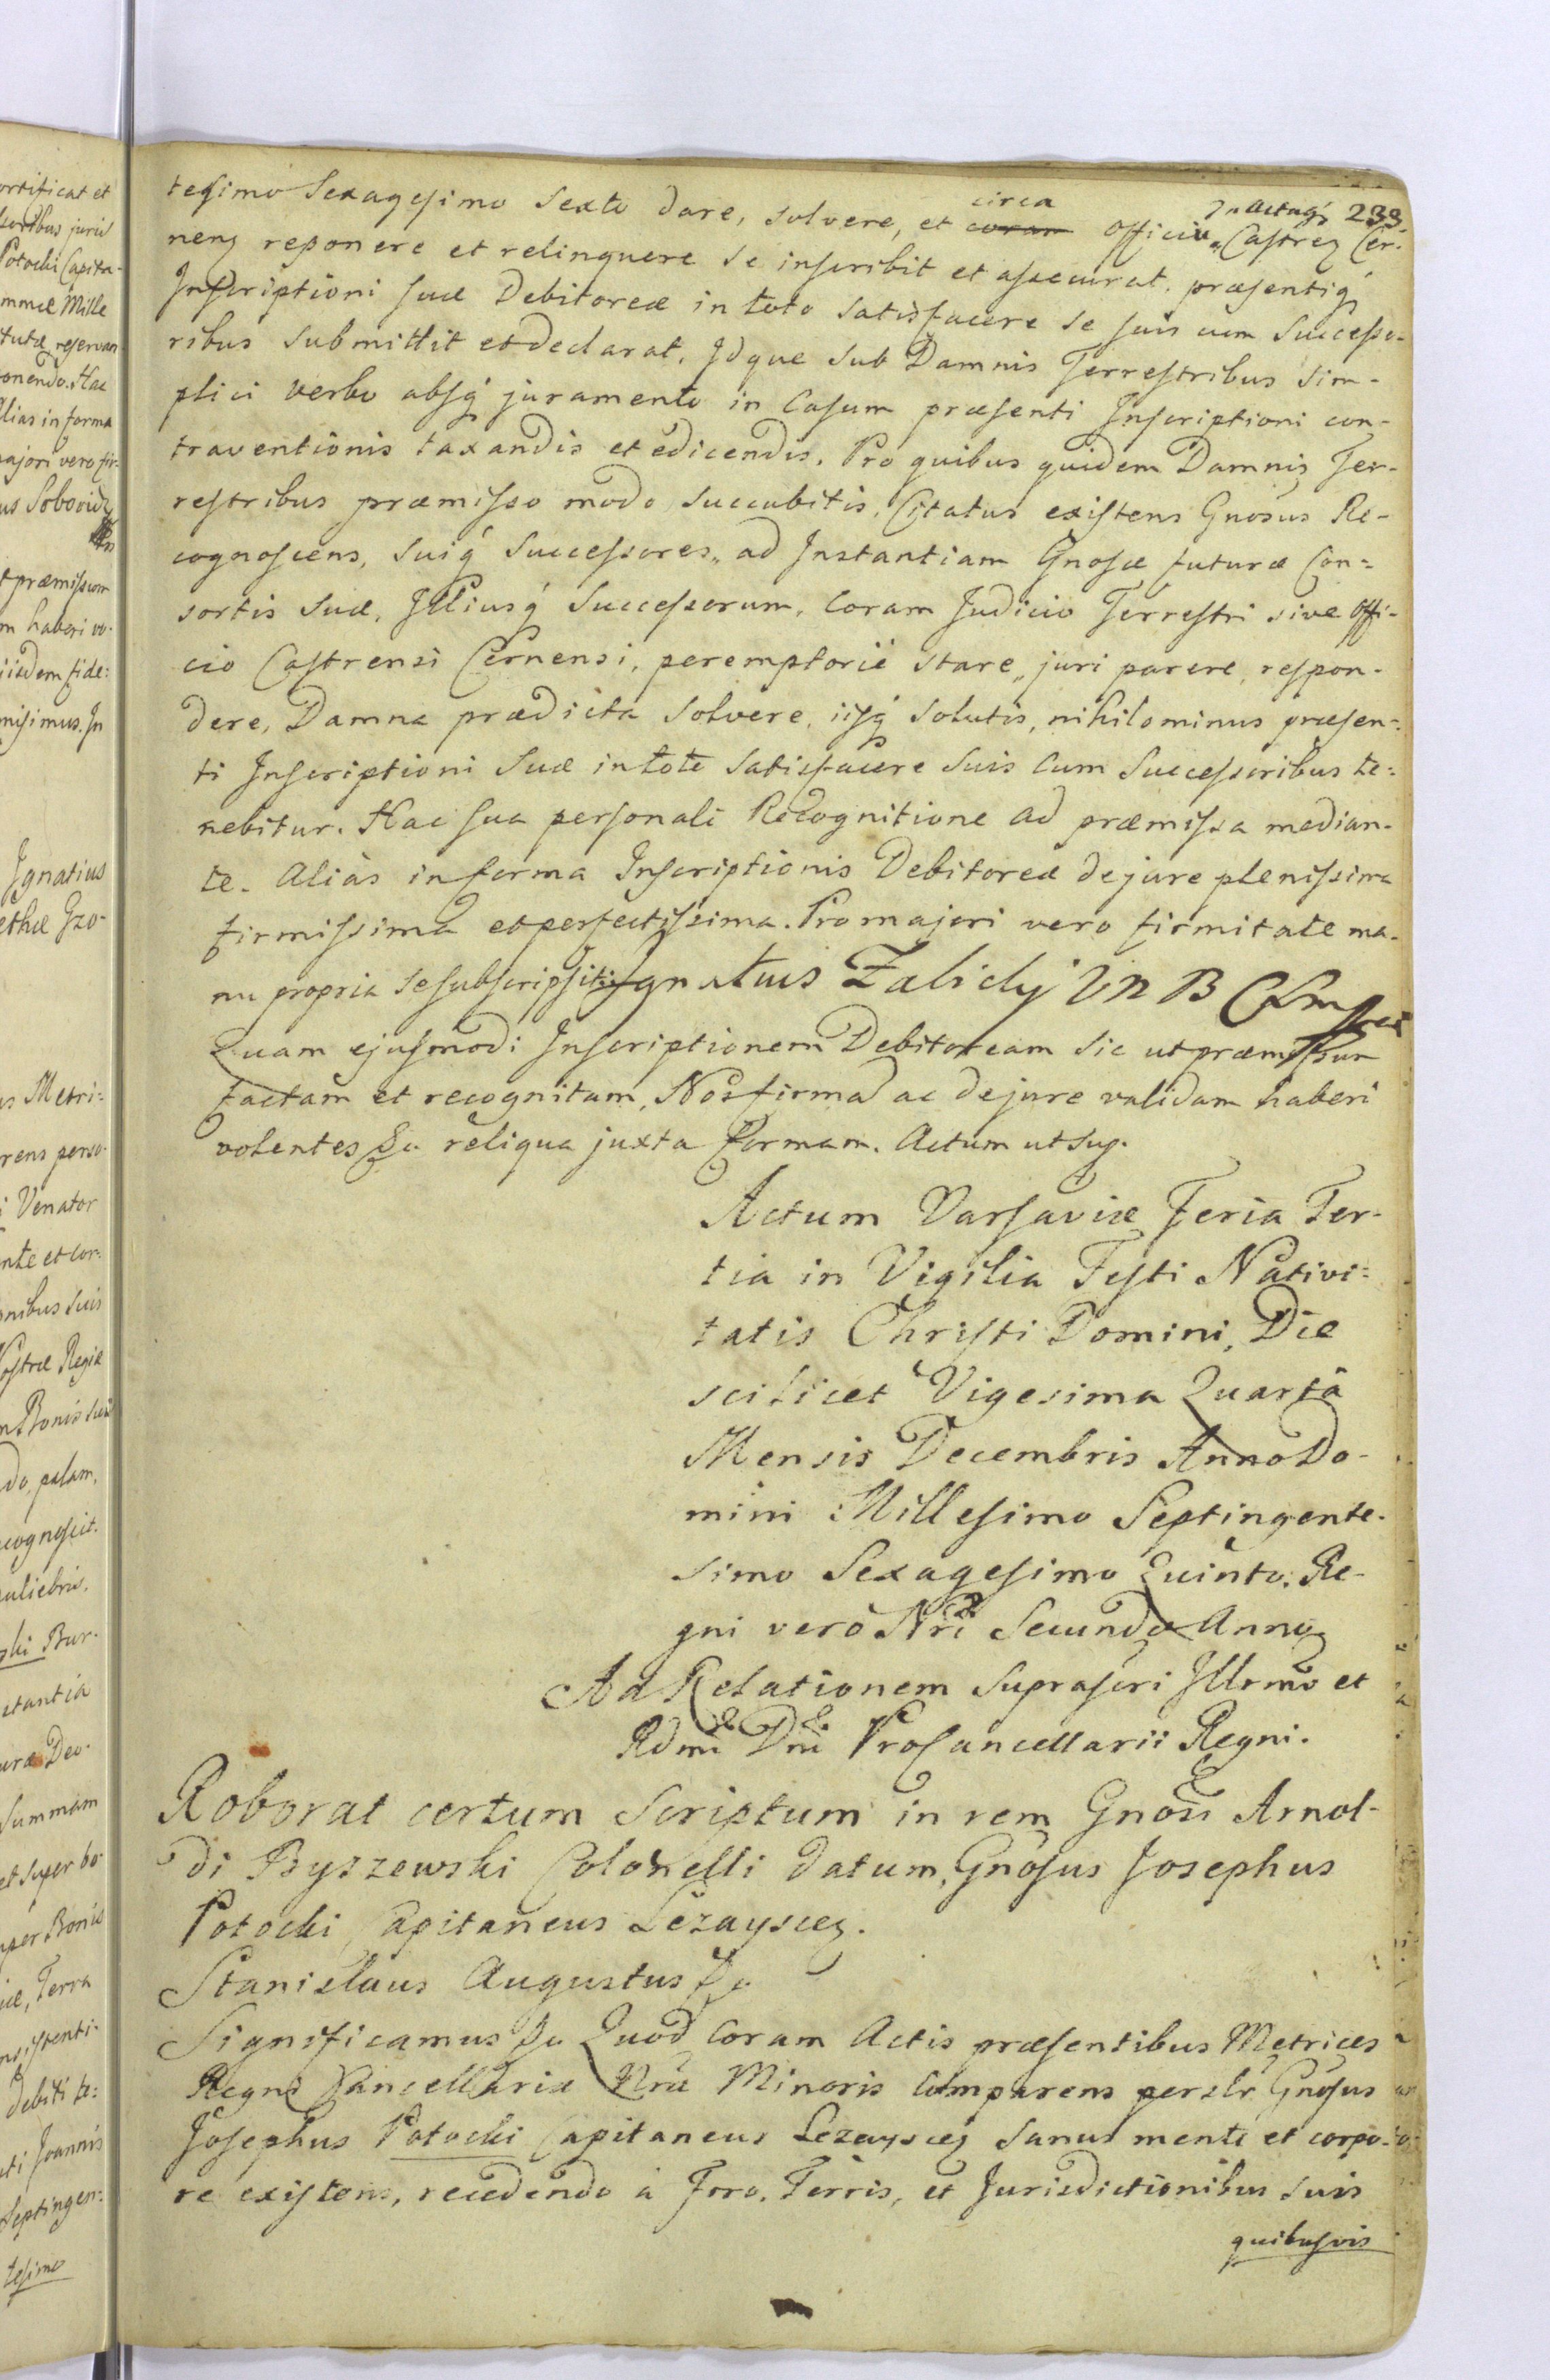 233
tesimo Sexagesimo Sexto dare, solvere, et coram circa Officiu Inactaq́ Castreȝ Cer-
nenȝ reponere et relinquere se inscribit et assecurat. præsentiq́
Inscriptioni suæ Debitoreæ in toto satisfacere se suis cum Successo-
ribus submittit et declarat. Idque sub Damnis Terrestribus sim-
plici verbo absq́ juramento in Casum præsenti Inscriptioni con-
traventionis taxandis et edicendis. Pro quibus quidem Damnis Ter-
restribus præmisso modo succubitis, Citatus existens Gnosus Re-
cognoscens, suiq́ Successores, ad Instantiam Gnosæ futuræ Con=
sortis suæ, Illiusq́ Successorum, Coram Judicio Terrestri sive Offi-
cio Castrensi Cernensi, peremptoriè stare, juri parere, respon-
dere, Damna prædicta solvere, iisq́ solutis, nihilominus præsen=
ti Inscriptioni suæ in toto satisfacere suis cum Successoribus te=
nebitur. Hac sua personali Recognitione ad præmissa median-
te. Aliàs in forma Inscriptionis Debitoreæ de jure plenissima
firmissima et perfectissima. Pro majori vero firmitate ma-
nu propria se subscripsit. Ignatius Zalicky V N B
Quam ejusmodi Inscriptionem Debitoream sic ut præmissum
factam et recognitam, Nos firmã ac de jure validam haberi
volentes &a reliqua juxta formam. Actum ut sup.
Actum Varsaviæ Feria Ter-
tia in Vigilia Festi Nativi=
tatis Christi Domini, Die
scilicet Vigesima Quartâ
Mensis Decembris Anno Do-
mini Millesimo Septingente-
simo Sexagesimo Quinto. Re-
gni vero Nri Secundo Anno
Ad Relationem suprascri Illrmo et
Rdmi Dni ProCancellarii Regni.
Roborat certum Scriptum in rem Gnosi Arnol-
di Byszewski Colonelli datum, Gnosus Josephus
Potocki Capitaneus Lezaysceȝ.
Stanislaus Augustus &a
Significamus &a Quod Coram Actis præsentibus Metrices
Regni Cancellariæ Nræ Minoris Comparens perslr Gnosus
Josephus Potocki Capitaneus Lezaysceȝ sanus mente et corpo-
re existens, recedendo à Foro, Terris, et Jurisdictionibus suis
quibusvis